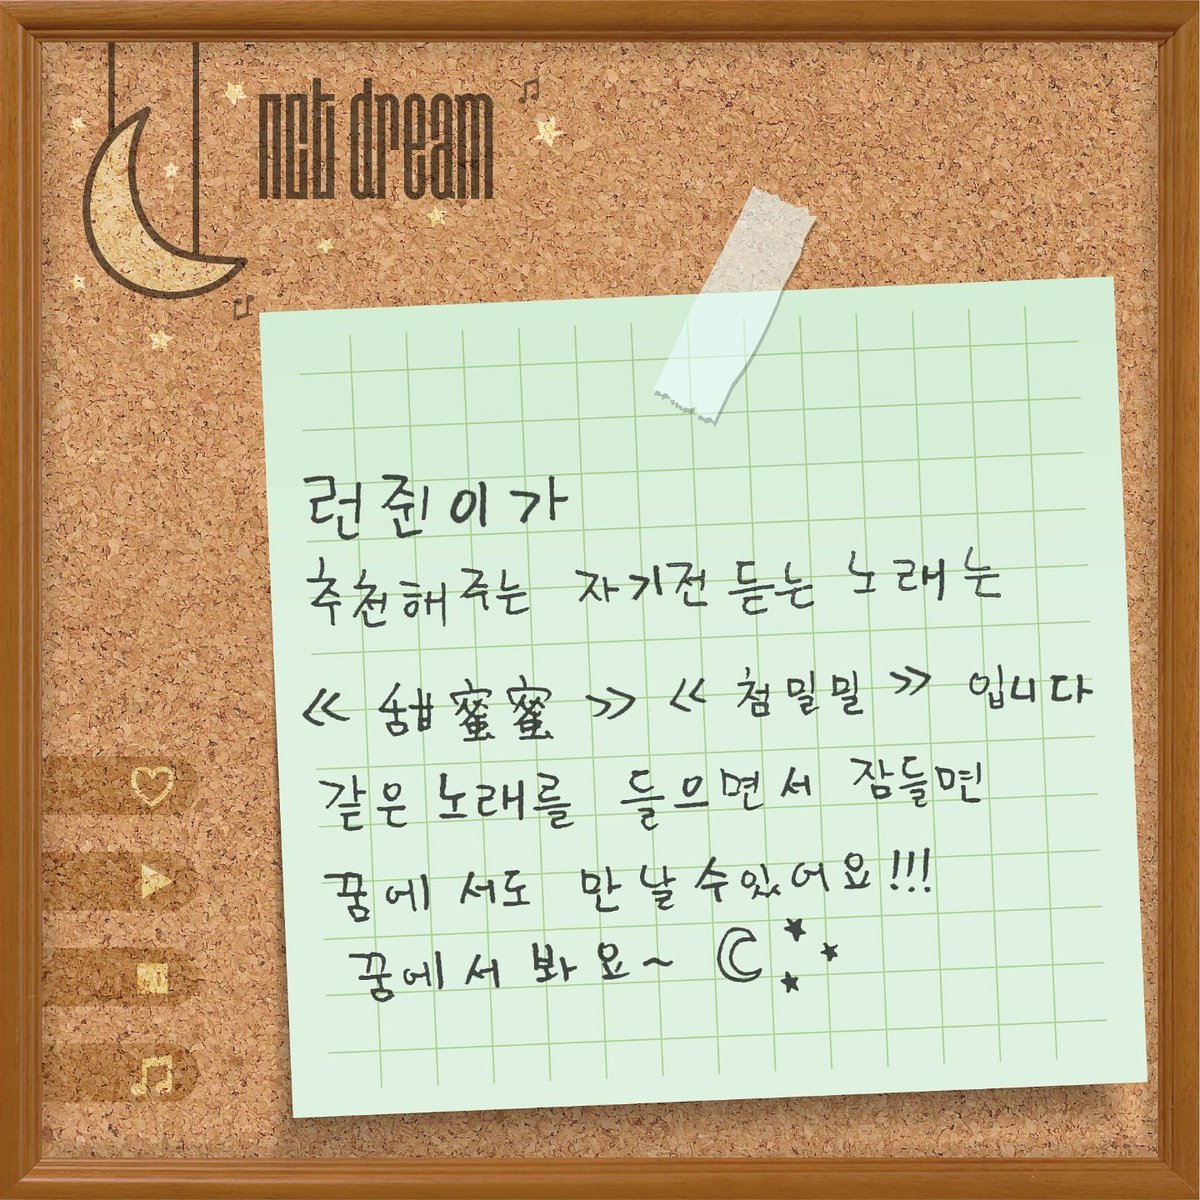 nct dream
런쥔이가
추천해주는 자기전 듣는 노래는
《 甜蜜蜜 》 《 첨밀밀 》 입니다
같은 노래를 들으면서 잠들면
꿈에서도 만날수있어요!!!
꿈에서 봐요~